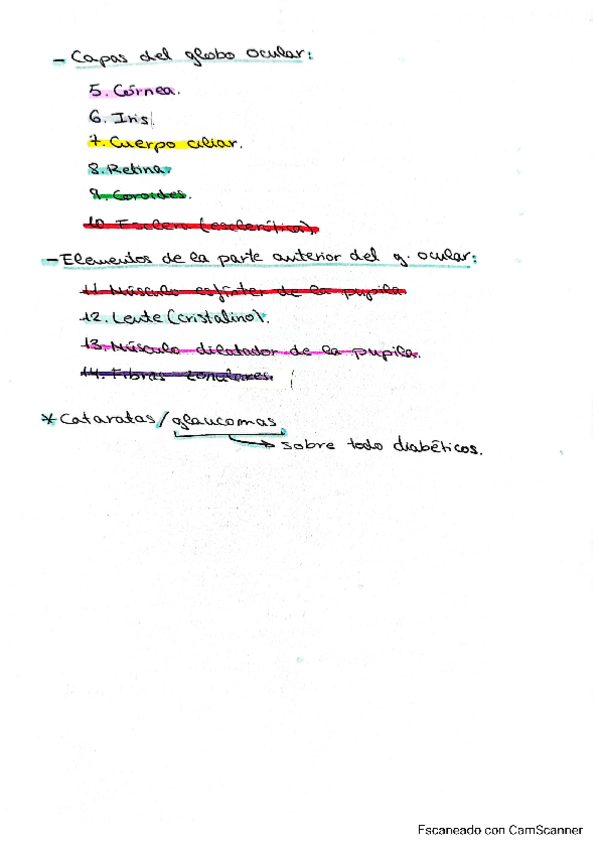 - Capas del globo ocular:
5. Córnea.
6. Iris.
7. Cuerpo ciliar.
8. Retina.
9. Coroides.
10. Esclera (esclerótica).
- Elementos de la parte anterior del g. ocular:
11. Músculo esfínter de la pupila
12. Lente (cristalino).
13. Músculo dilatador de la pupila.
14. Fibras zonulares.
* Cataratas/glaucomas
→ sobre todo diabéticos.
Escaneado con CamScanner